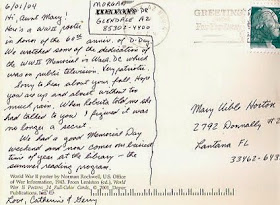 6/01/04
MORGAN
DR
GLENDALE AZ
85302-4400
Hi, Aunt Mary!
Here's a WWII poster
in honor of the 60th anniv. of D-Day
We watched some of the dedication of
the WWII Memorial in Wash. DC which
was on public television. Very patriotic
Sorry to hear about your fall. Hope
you are up and about without too
much pain. When Roberta told me she
had talked to you I figured it was
no longer a secret.
We had a good Memorial Day
weekend and now comes our busiest
time of year at the library - the
summer reading program.
Love, Catherine & Gerry
World War II poster by Norman Rockwell, U.S. Office
of War Information, 1943.
World War II Posters: 24 Full-Color Cards, © 2001 Dover
Publications, Inc.
GREETINGS
Mary Webb Horton
2792 Donnally
Lantana FL
33462-